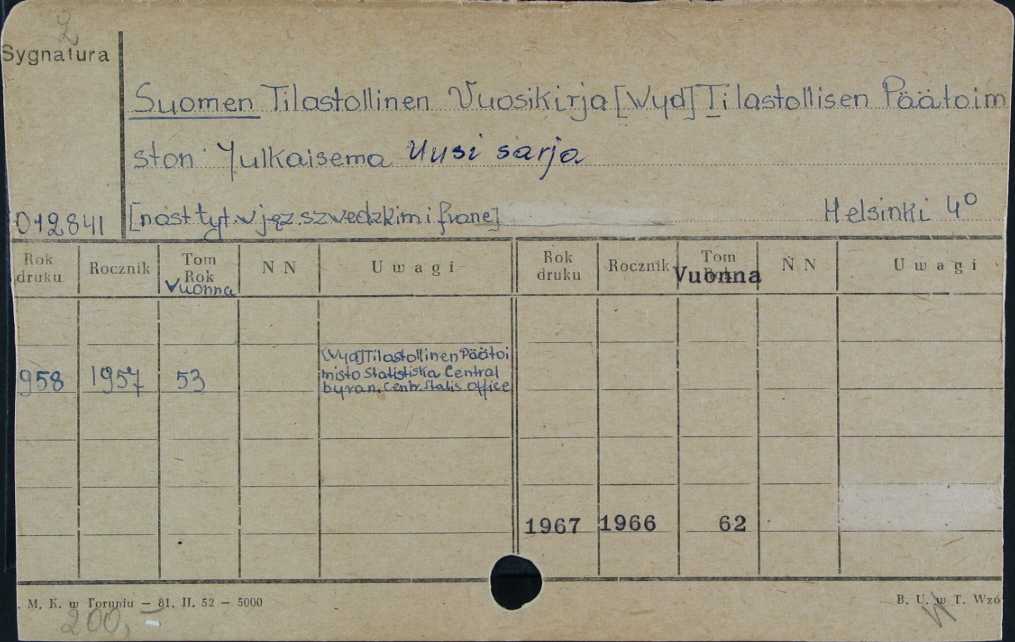 2
Sygnatura
Suomen Tilastollinen Vuosikirja [Wyd] Tilastollisen Päätoim
ston Julkaisema Uusi sarja
012841 [nast tyt. w jęz. szwedzkim i franc] Helsinki 4°
Rok druku Rocznik Tom Rok Vuonna N N Uwagi Rok druku Rocznik Tom Vuonna N N Uwagi
[Wyd] Tilastollinen Päätoi
958 1957 53 misto Statistiska Central
byran. Centr. Statis. Office
1967 1966 62
. M. K. w Toruniu – 81. II. 52 – 5000 B. U. w T. Wzó
200,–